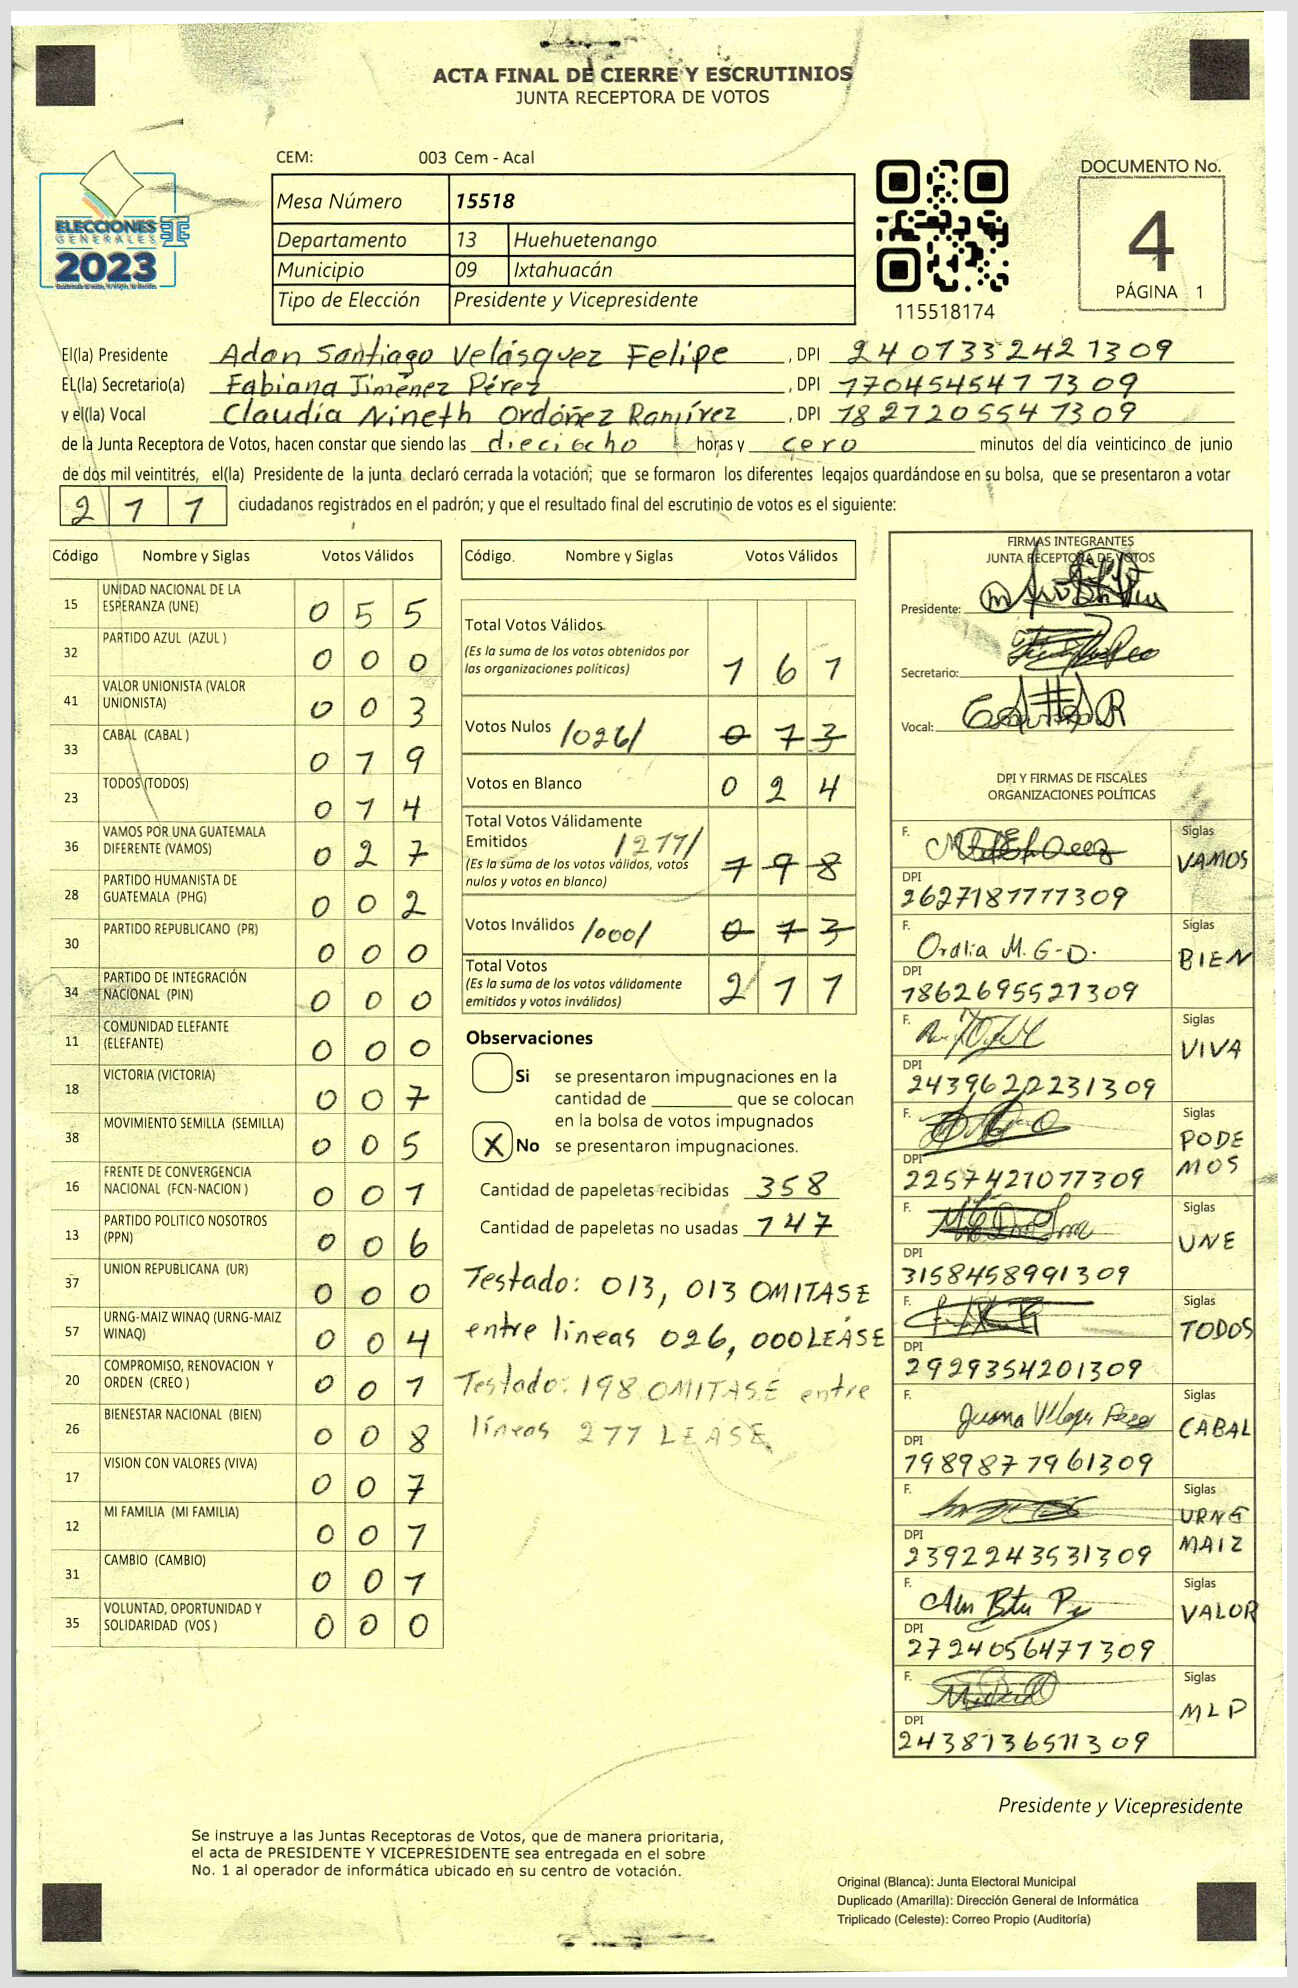 ACTA FINAL DE CIERRE Y ESCRUTINIOS
JUNTA RECEPTORA DE VOTOS
CEM: 003 Cem - Acal
DOCUMENTO No.
4
PÁGINA 1
ELECCIONES
GENERALES
2023
Mesa Número 15518
Departamento 13 Huehuetenango
Municipio 09 Ixtahuacán
Tipo de Elección Presidente y Vicepresidente
115518174
El(la) Presidente Adan Santiago Velásquez Felipe , DPI 2401332421309
EL(la) Secretario(a) Fabiana Jiménez Pérez , DPI 1704545411309
y el(la) Vocal Claudia Nineth Ordóñez Ramírez , DPI 1827205541309
de la Junta Receptora de Votos, hacen constar que siendo las dieciocho horas y cero minutos del día veinticinco de junio
de dos mil veintitrés, el(la) Presidente de la junta declaró cerrada la votación; que se formaron los diferentes legajos guardándose en su bolsa, que se presentaron a votar
211 ciudadanos registrados en el padrón; y que el resultado final del escrutinio de votos es el siguiente:
Código Nombre y Siglas Votos Válidos
15 UNIDAD NACIONAL DE LA
ESPERANZA (UNE) 0 5 5
32 PARTIDO AZUL (AZUL ) 0 0 0
41 VALOR UNIONISTA (VALOR
UNIONISTA) 0 0 3
33 CABAL (CABAL ) 0 1 9
23 TODOS (TODOS) 0 1 4
36 VAMOS POR UNA GUATEMALA
DIFERENTE (VAMOS) 0 2 7
28 PARTIDO HUMANISTA DE
GUATEMALA (PHG) 0 0 2
30 PARTIDO REPUBLICANO (PR) 0 0 0
34 PARTIDO DE INTEGRACIÓN
NACIONAL (PIN) 0 0 0
11 COMUNIDAD ELEFANTE
(ELEFANTE) 0 0 0
18 VICTORIA (VICTORIA) 0 0 7
38 MOVIMIENTO SEMILLA (SEMILLA) 0 0 5
16 FRENTE DE CONVERGENCIA
NACIONAL (FCN-NACION ) 0 0 1
13 PARTIDO POLITICO NOSOTROS
(PPN) 0 0 6
37 UNION REPUBLICANA (UR) 0 0 0
57 URNG-MAIZ WINAQ (URNG-MAIZ
WINAQ) 0 0 4
20 COMPROMISO, RENOVACION Y
ORDEN (CREO ) 0 0 1
26 BIENESTAR NACIONAL (BIEN) 0 0 8
17 VISION CON VALORES (VIVA) 0 0 7
12 MI FAMILIA (MI FAMILIA) 0 0 1
31 CAMBIO (CAMBIO) 0 0 1
35 VOLUNTAD, OPORTUNIDAD Y
SOLIDARIDAD (VOS ) 0 0 0
Código. Nombre y Siglas Votos Válidos
Total Votos Válidos
(Es la suma de los votos obtenidos por
las organizaciones políticas) 1 6 1
Votos Nulos /026/ 0 1 3
Votos en Blanco 0 2 4
Total Votos Válidamente
Emitidos /211/
(Es la suma de los votos válidos, votos
nulos y votos en blanco) 1 9 8
Votos Inválidos /000/ 0 1 3
Total Votos
(Es la suma de los votos válidamente
emitidos y votos inválidos) 2 1 1
Observaciones
Si se presentaron impugnaciones en la
cantidad de ________ que se colocan
en la bolsa de votos impugnados
X No se presentaron impugnaciones.
Cantidad de papeletas recibidas 358
Cantidad de papeletas no usadas 147
Testado: 013, 013 OMITASE
entre lineas 026, 000 LEASE
Testado: 198 OMITASE entre
líneas 211 LEASE
FIRMAS INTEGRANTES
JUNTA RECEPTORA DE VOTOS
Presidente:
Secretario:
Vocal:
DPI Y FIRMAS DE FISCALES
ORGANIZACIONES POLÍTICAS
F. Siglas
VAMOS
DPI
2627181111309
F. Ordlia M. G-D. Siglas
BIEN
DPI
1862695521309
F. Siglas
VIVA
DPI
2439622231309
F. Siglas
PODE
MOS
DPI
2257421011309
F. Siglas
UNE
DPI
3158458991309
F. Siglas
TODOS
DPI
2929354201309
F. Juana Siglas
CABAL
DPI
1989871961309
F. Siglas
URNG
MAIZ
DPI
2392243531309
F. Siglas
VALOR
DPI
2724056471309
F. Siglas
MLP
DPI
2438136511309
Presidente y Vicepresidente
Se instruye a las Juntas Receptoras de Votos, que de manera prioritaria,
el acta de PRESIDENTE Y VICEPRESIDENTE sea entregada en el sobre
No. 1 al operador de informática ubicado en su centro de votación.
Original (Blanca): Junta Electoral Municipal
Duplicado (Amarilla): Dirección General de Informática
Triplicado (Celeste): Correo Propio (Auditoría)